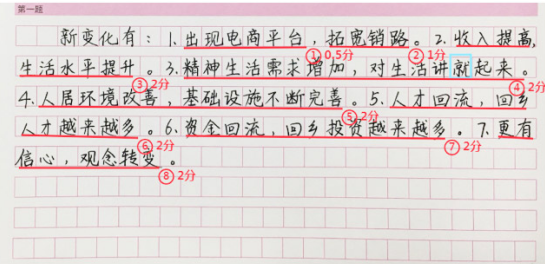 第一题
新变化有：1.出现电商平台，拓宽销路。2.收入提高，
①0.5分 ②1分
生活水平提升。3.精神生活需求增加，对生活讲就起来。
③2分 ④2分
4.人居环境改善，基础设施不断完善。5.人才回流，回乡
⑤2分
人才越来越多。6.资金回流，回乡投资越来越多。7.更有
⑥2分 ⑦2分
信心，观念转变。
⑧2分